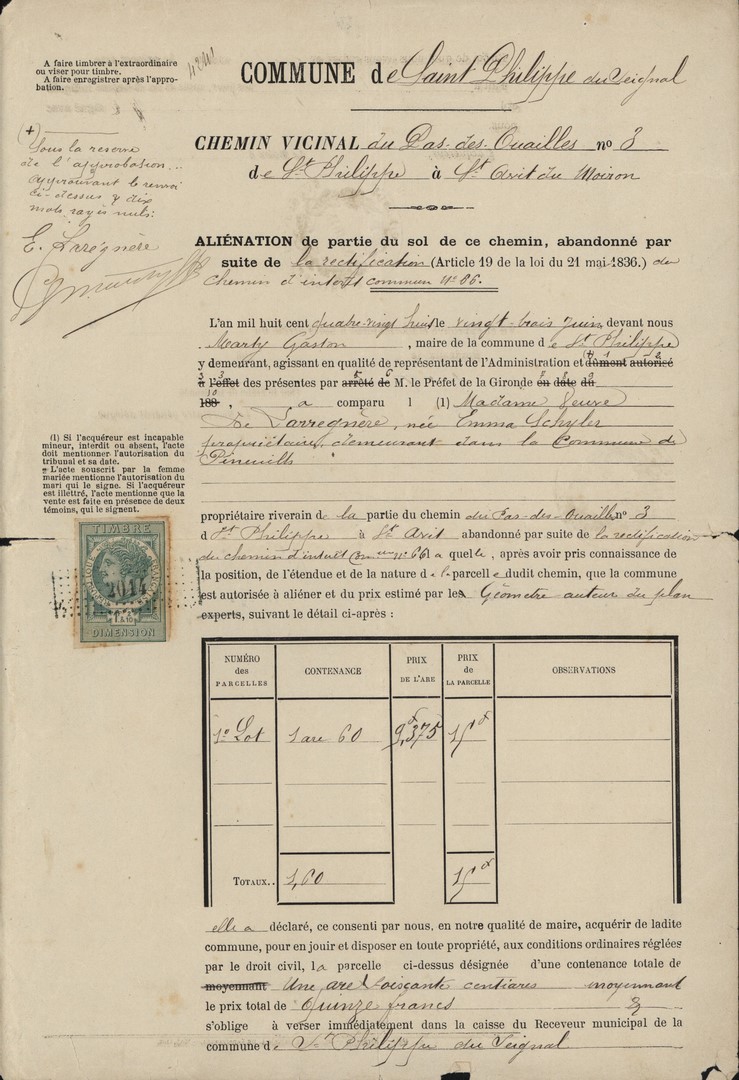 A faire timbrer à l'extraordinaire
ou viser pour timbre.
A faire enregistrer après l'appro-
bation.
COMMUNE de Saint Philippe du Seignal
CHEMIN VICINAL du Pas-des-Ouailles no 3
de St Philippe à St Avit du Moiron
(+)
Sous la reserve
de l'approbation...
approuvant le renvoi
ci-dessus & dix
mots rayés nuls:
E. Larregnère
ALIÉNATION de partie du sol de ce chemin, abandonné par
suite de la rectification (Article 19 de la loi du 21 mai 1836.) du
chemin d'intérêt commun No 86.
L'an mil huit cent quatre-vingt huit le vingt-trois juin devant nous
Marty Gaston, maire de la commune de St Philippe
y demeurant, agissant en qualité de représentant de l'Administration et (+) dûment autorisé
à l'effet des présentes par arrêté de M. le Préfet de la Gironde en date du
188 , a comparu l (1) Madame Veuve
de Larregnère, née Emma Schyler
propriétaire, demeurant dans la Commune de
Pineuilh
(1) Si l'acquéreur est incapable
mineur, interdit ou absent, l'acte
doit mentionner l'autorisation du
tribunal et sa date.
L'acte souscrit par la femme
mariée mentionne l'autorisation du
mari qui le signe. Si l'acquéreur
est illettré, l'acte mentionne que la
vente est faite en présence de deux
témoins, qui le signent.
propriétaire riverain de la partie du chemin du Pas-des-Ouailles no 3
d St Philippe à St Avit abandonné par suite de la rectification
du chemin d'intérêt com un no 66 a quelle, après avoir pris connaissance de
la position, de l'étendue et de la nature de la parcelle dudit chemin, que la commune
est autorisée à aliéner et du prix estimé par les Géomètre auteur du plan
experts, suivant le détail ci-après :
TIMBRE
2014
DIMENSION
NUMÉRO des PARCELLES CONTENANCE PRIX DE L'ARE PRIX de LA PARCELLE OBSERVATIONS
1er Lot 1 are 60 9f,375 15f
TOTAUX.. 1,60 15f
elle a déclaré, ce consenti par nous, en notre qualité de maire, acquérir de ladite
commune, pour en jouir et disposer en toute propriété, aux conditions ordinaires réglées
par le droit civil, la parcelle ci-dessus désignée d'une contenance totale de
moyennant Une are soixante centiares moyennant
le prix total de Quinze francs
s'oblige à verser immédiatement dans la caisse du Receveur municipal de la
commune de St Philippe du Seignal